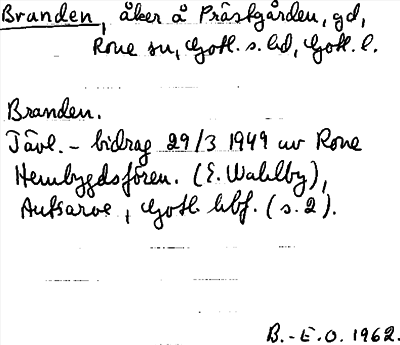 Branden, åker å Prästgården, gd,
Rone sn, Gotl. s. hd, Gotl. l.
Branden.
Tävl.-bidrag 29/3 1949 av Rone
Hembygdsfören. (E. Wahlby),
Autsarve, Gotl. hbf. (s. 2).
B.-E.O. 1962.